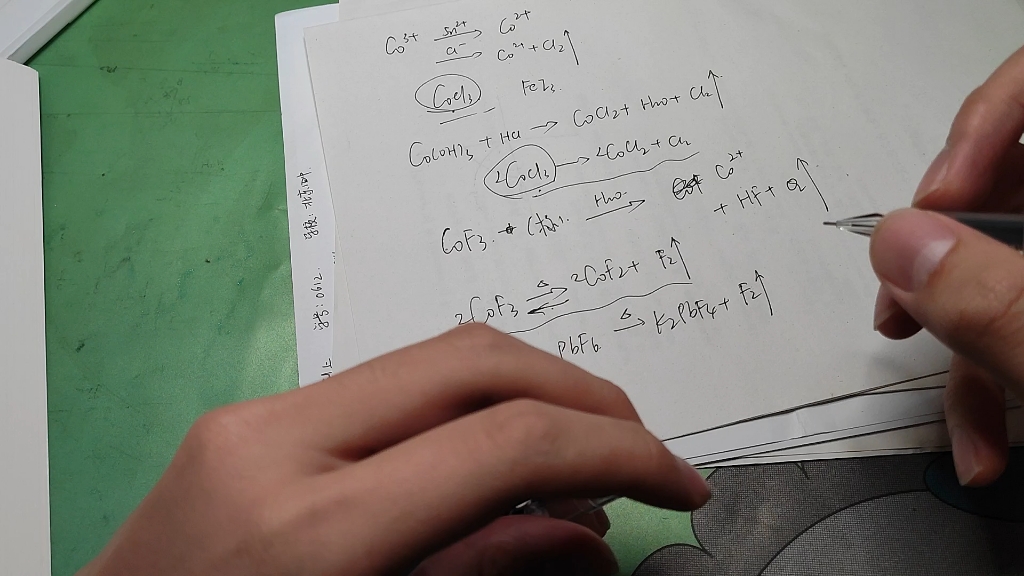 Co³⁺ —Sn²⁺→ Co²⁺
—Cl⁻→ Co²⁺ + Cl₂↑
CoCl₃ FeI₃.
Co(OH)₃ + HCl → CoCl₂ + H₂O + Cl₂↑
2CoCl₃ → 2CoCl₂ + Cl₂
CoF₃. —H₂O→ Co²⁺
+ HF + O₂↑
2CoF₃ ⇌ 2CoF₂ + F₂↑
PbF₆ —Δ→ K₂PbF₄ + F₂↑